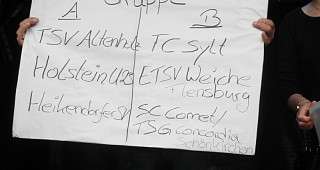 Gruppe
A
B
TSV Altenholz
TC Sylt
Holstein U23
ETSV Weiche
Flensburg
Heikendorfer SV
SC Comet/
TSG Concordia
Schönkirchen